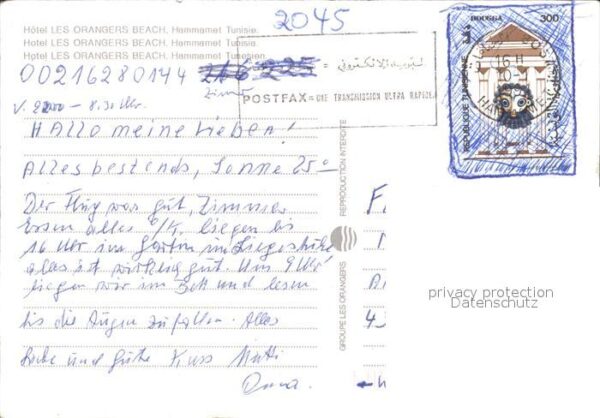 2045
Hôtel LES ORANGERS BEACH. Hammamet Tunisie.
Hôtel LES ORANGERS BEACH. Hammamet Tunisie.
Hôtel LES ORANGERS BEACH. Hammamet Tunisie.
00216280144 216 225
Zimm
v. 2200 - 8.30 Uhr.
POSTFAX = UNE TRANSMISSION ULTRA RAPIDE
DOUGGA 300
REPUBLIQUE TUNISIENNE
16 H
Hallo meine Lieben!
Alles bestends, Sonne 25°
Der Flug war gut, Zimmer
Essen alles o/k. liegen bis
16 Uhr im Garten im Liegestühle
alles ist wirklich gut. Um 9 Uhr
liegen wir im Bett und lesen
bis die Augen zufallen. Alles
Liebe und Gute Kuss Mutti
Oma.
REPRODUCTION INTERDITE
GROUPE LES ORANGERS
privacy protection
Datenschutz